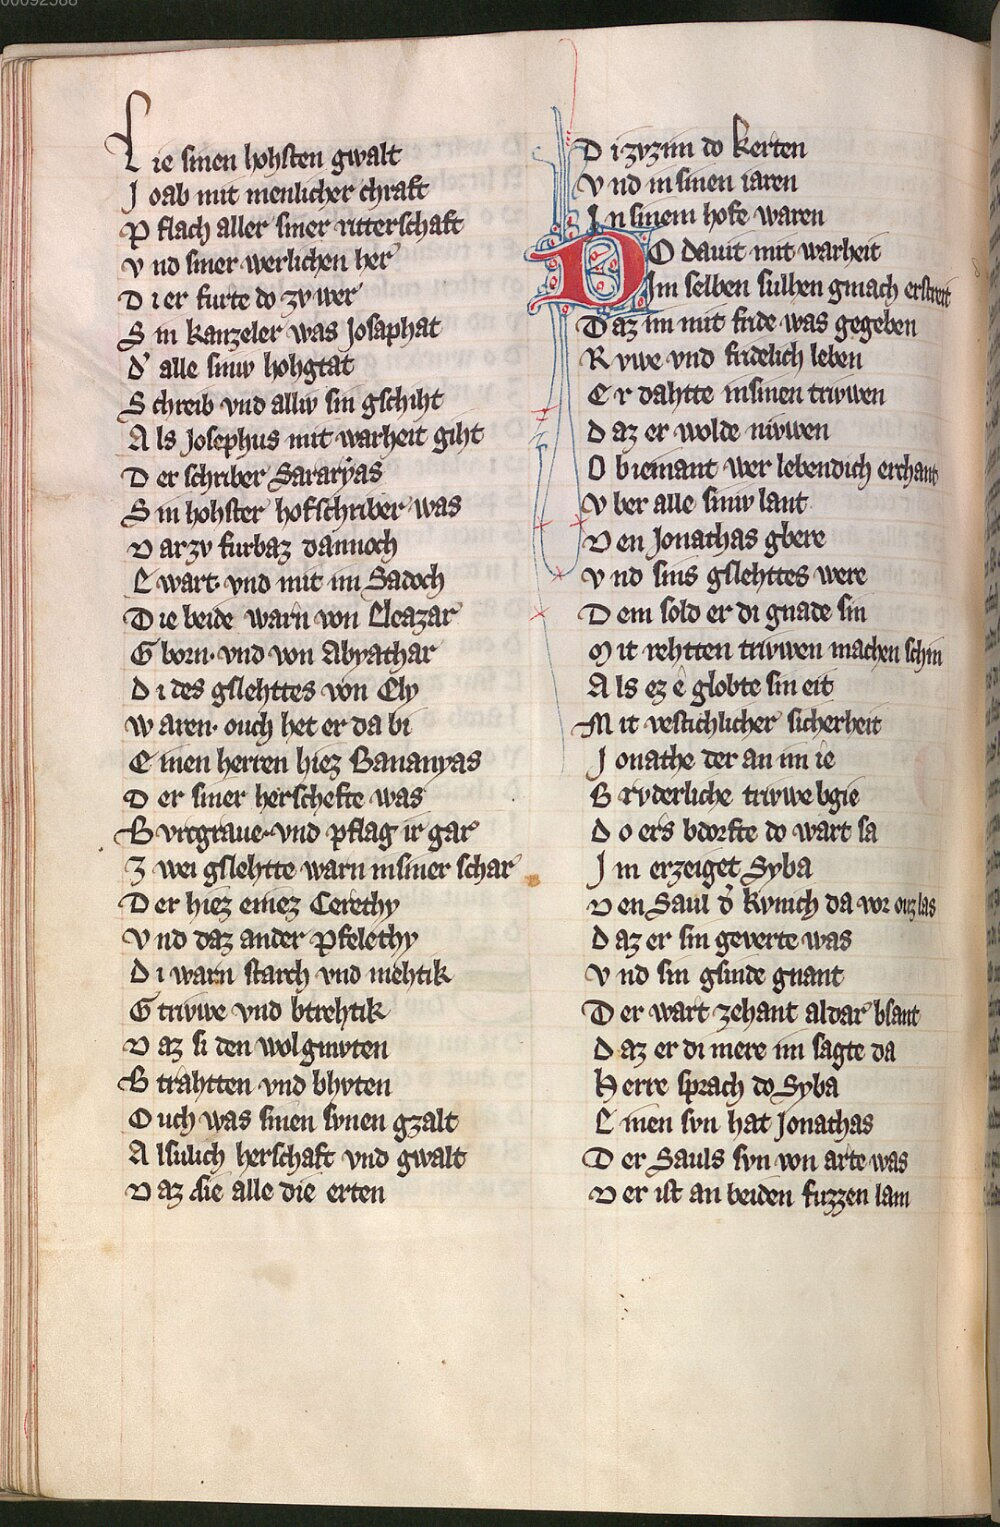 L ie sinen hohsten gwalt
J oab mit menlicher chraft
P flach aller siner ritterschaft
v nd siner werlichen her
D i er furte do zv wer
S in kanzeler was Josaphat
d' alle sinw hohgtat
S chreib vnd alliv sin gschiht
A ls Josephus mit warheit giht
D er schriber Sararÿas
S in hohster hofschriber was
D arzv furbaz dannoch
E wart· vnd mit im Sadoch
D ie beide warn von Eleazar
G born· vnd von Abyathar
D i des gslehttes von Ely
w aren· ouch het er da bi
E inen herren hiez Bananyas
D er siner herschefte was
B vrcgraue· vnd pflag ir gar
Z wei gslehtte warn in siner schar
D er hiez einez Cerethy
v nd daz ander Pfelethy
D i warn starch vnd mehtik
G triwe vnd btrehtik
D az si den wol gmvten
B trahtten vnd bhvten
O uch was sinen svnen gzalt
A lsulich herschaft vnd gwalt
D az sie alle die erten
D i zvzim do kerten
v nd in sinen iaren
J n sinem hofe waren
DO dauit mit warheit
Jm selben sulhen gmach erstreit
D az im mit fride was gegeben
R vwe vnd fridelich leben
E r dahtte in sinen trivwen
D az er wolde nivwen
O b iemant wer lebendich erchant
v ber alle sinw lant
D en Jonathas gbere
v nd sins gslehttes were
D em sold er di gnade sin
M it rehtten trivwen machen schin
A ls ez ê globte sin eit
M it vestichlicher sicherheit
J onathe der an im ie
B rvderliche trivwe bgie
D o ers bdorfte do wart sa
J m erzeiget Syba
D en Saul d' kvnich da vor ovz las
D az er sin geverte was
v nd sin gsinde gnant
D er wart zehant aldar bsant
D az er di mere im sagte da
H erre sprach do Syba
E inen svn hat Jonathas
D er Sauls svn von arte was
D er ist an beiden fuzzen lam